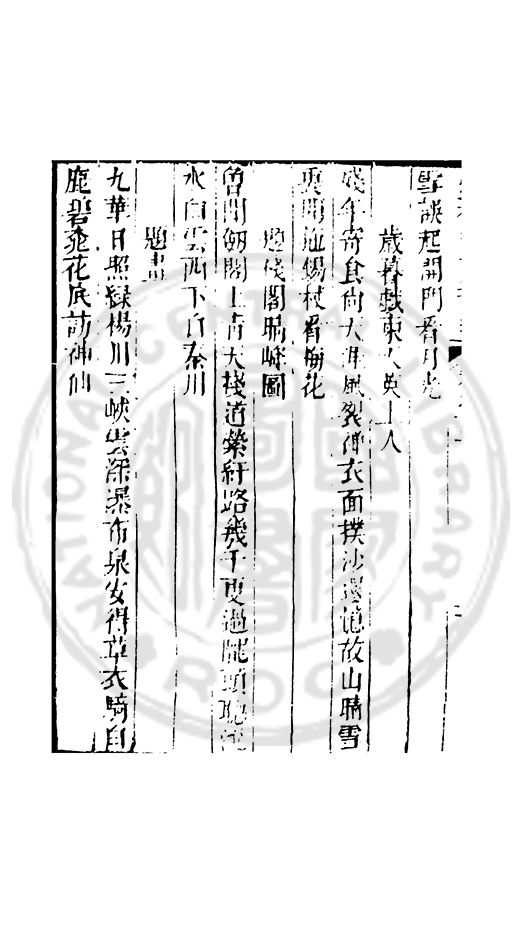 談起開門看月光
歲暮戲東人英上人
殘年寄食尚天涯風裂禪衣面撲沙還憶故山晴雪
裏閒拖錫杖看梅花
題棧閣晴峰圖
曾聞劒閣上青天棧道縈紆路幾千更過隴頭聽流
水白雲西下是秦川
題畫
九華日照綠楊川三峽雲深瀑布泉安得草衣騎白
鹿碧桃花底訪神仙